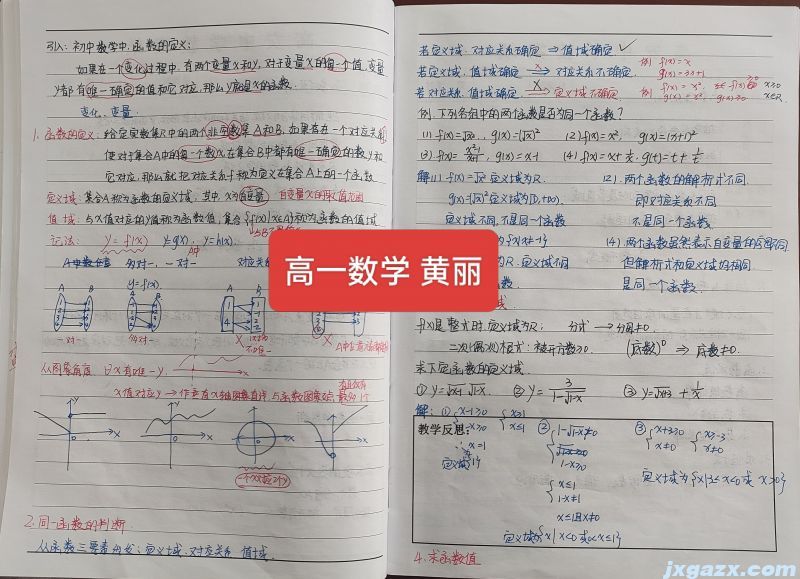 引入: 初中数学中, 函数的定义:
如果在一个变化过程中, 有两个变量x和y, 对于变量x的每一个值, 变量
y都有唯一确定的值和它对应, 那么y就是x的函数.
变化、变量
1. 函数的定义: 给定实数集R中的两个非空数集A和B, 如果存在一个对应关系f
使对于集合A中的每一个数x, 在集合B中都有唯一确定的数y和
它对应, 那么就把对应关系f称为定义在集合A上的一个函数
定义域: 集合A称为函数的定义域, 其中, x为自变量 自变量x的取值范围
值域: 与x值对应的y值称为函数值, 集合{f(x)|x∈A}称为函数的值域
记法: y=f(x) y=g(x), y=h(x).
多对一, 一对一. 对应关
y=f(x).
A B A B A B A
一对一 多对一 X X
不唯一
从图象角度 ∀x 有唯一y.
x值对应y → 作垂直x轴的直线, 与函数图象
一个x对应2个y
2. 同一函数的判断
从函数三要素出发: 定义域、对应关系 值域
若定义域, 对应关系确定 ⇒ 值域确定 ✓
若定义域, 值域确定 ⇒ 对应关系不确定. 例 f(x)=x
若对应关系, 值域确定 ⇒ 定义域不确定 例 f(x)=x²
例. 下列各组中的两个函数是否为同一个函数?
(1) f(x)=√x², g(x)=(√x)² (2) f(x)=x², g(x)=(x+1)²
(3) g(x)=x-1 (4) f(x)=x+1/x g(t)=t+1/t
解: (1) f(x)=√x² 定义域为R (2). 两个函数的解析式不同.
g(x)=(√x)² 定义域为[0,+∞). 即对应关系不同
定义域不同, 不是同一个函数 不是同一个函数
为{x|x≠-1} (4) 两个函数虽然表示自变量的字母不同
为R. 定义域不同 但解析式和定义域均相同
函数. 是同一个函数.
高一数学 黄丽
f(x)是整式时, 定义域为R; 分式 → 分母≠0.
二次(偶次)根式: 被开方数≥0. (底数)⁰ ⇒ 底数≠0.
求下函数的定义域
① y=√x-1·√1-x ② y=3/(1-√1-x) ③ y=√x+3+1/x
解: ① x-1≥0 x≥1
1-x≥0 x≤1
教学反思: ② 1-√1-x≠0 ③ x+3≥0 x≥-3
x≠0 x≠0
∴ x=1
定义域{1} 1-x≥0 定义域为{x|-3≤x<0或x>0}
x≤1
1-x≠1
x≤1且x≠0
定义域{x|x<0或0<x≤1}
4. 求函数值
jxgazx.com